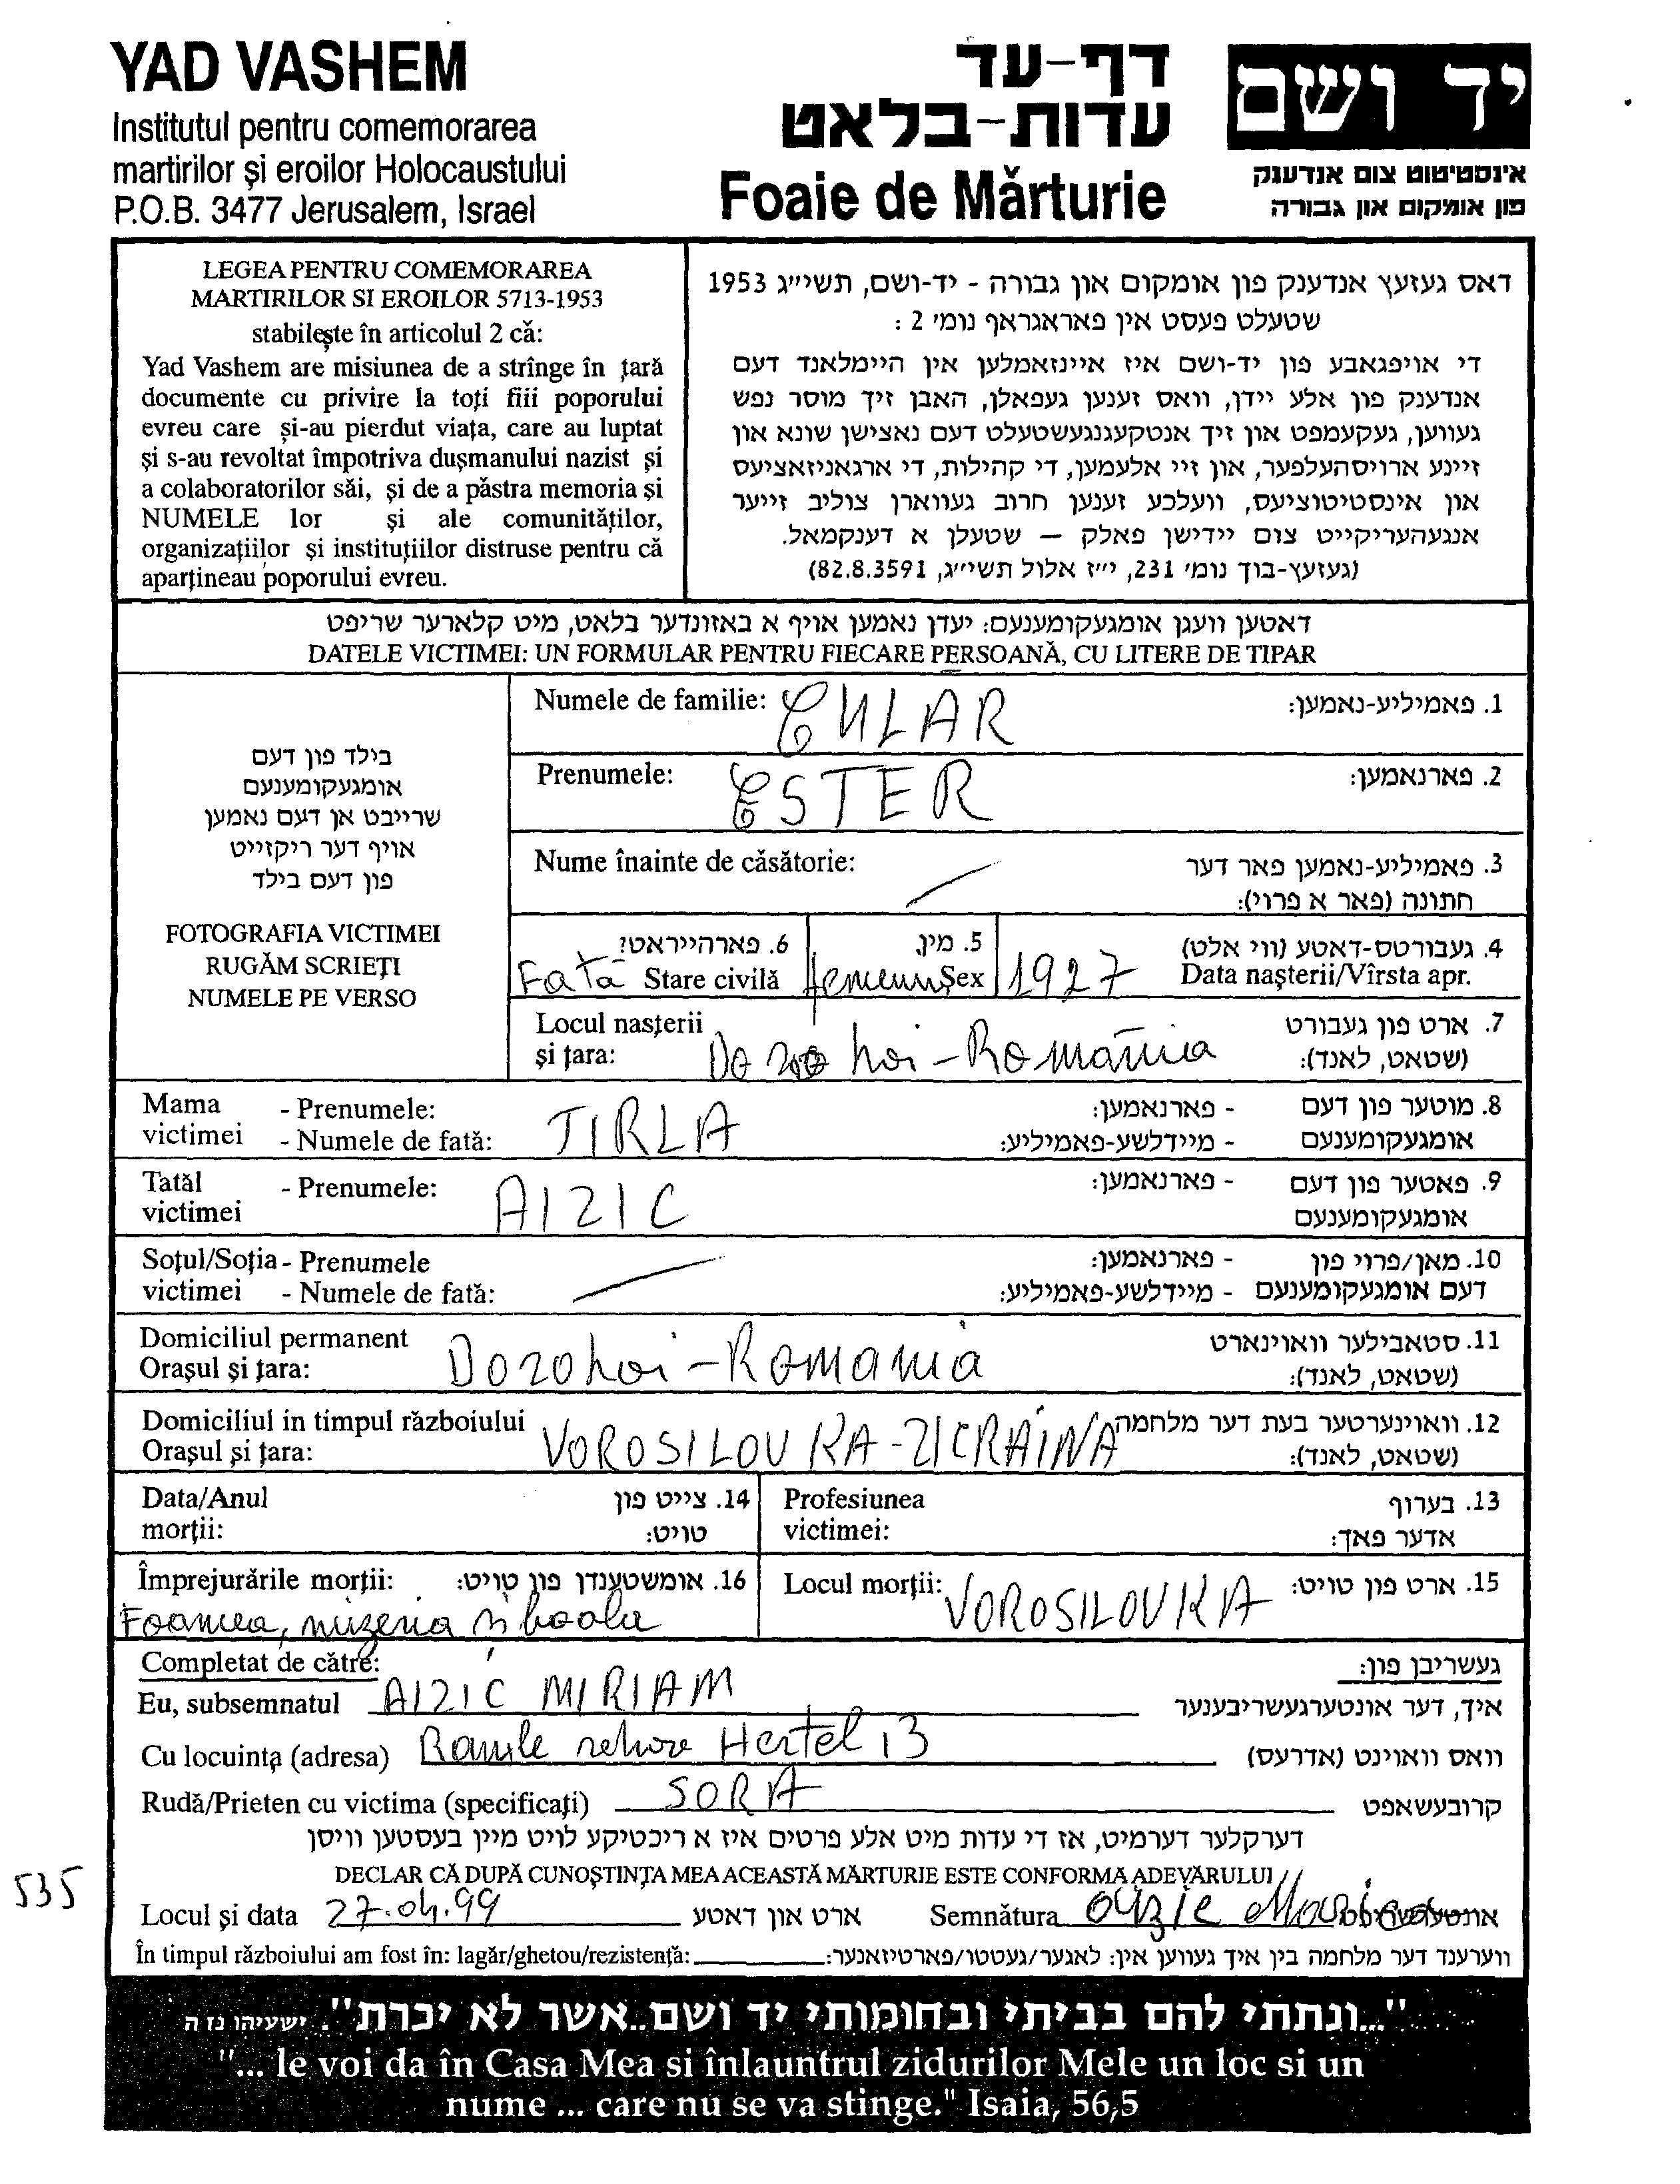 YAD VASHEM
Institutul pentru comemorarea
martirilor și eroilor Holocaustului
P.O.B. 3477 Jerusalem, Israel
דף-עד
עדות-בלאט
Foaie de Mărturie
יד ושם
אינסטיטוט צום אנדענק
פון אומקום און גבורה
LEGEA PENTRU COMEMORAREA
MARTIRILOR SI EROILOR 5713-1953
stabilește în articolul 2 că:
Yad Vashem are misiunea de a strînge în țară
documente cu privire la toți fiii poporului
evreu care și-au pierdut viața, care au luptat
și s-au revoltat împotriva dușmanului nazist și
a colaboratorilor săi, și de a păstra memoria și
NUMELE lor și ale comunităților,
organizațiilor și instituțiilor distruse pentru că
aparțineau poporului evreu.
דאס געזעץ אנדענק פון אומקום און גבורה - יד-ושם, תשי״ג 1953
שטעלט פעסט אין פאראגראף נומ׳ 2 :
די אויפגאבע פון יד-ושם איז איינזאמלען אין היימלאנד דעם
אנדענק פון אלע יידן, וואס זענען געפאלן, האבן זיך מוסר נפש
געווען, געקעמפט און זיך אנטקעגנגעשטעלט דעם נאצישן שונא און
זיינע ארויסהעלפער, און זיי אלעמען, די קהילות, די ארגאניזאציעס
און אינסטיטוציעס, וועלכע זענען חרוב געווארן צוליב זייער
אנגעהעריקייט צום יידישן פאלק – שטעלן א דענקמאל.
(געזעץ-בוך נומ׳ 231, י״ז אלול תשי״ג, 82.8.3591)
דאטען וועגן אומגעקומענעם: יעדן נאמען אויף א באזונדער בלאט, מיט קלארער שריפט
DATELE VICTIMEI: UN FORMULAR PENTRU FIECARE PERSOANĂ, CU LITERE DE TIPAR
בילד פון דעם
אומגעקומענעם
שרייבט אן דעם נאמען
אויף דער ריקזייט
פון דעם בילד
FOTOGRAFIA VICTIMEI
RUGĂM SCRIEȚI
NUMELE PE VERSO
Numele de familie: CULAR 1. פאמיליע-נאמען:
Prenumele: ESTER 2. פארנאמען:
Nume înainte de căsătorie: 3. פאמיליע-נאמען פאר דער
חתונה (פאר א פרוי):
6. פארהייראט? 5. מין, 4. געבורטס-דאטע (ווי אלט)
Fată Stare civilă Sex 1927 Data nașterii/Vîrsta apr.
Locul nașterii 7. ארט פון געבורט
și țara: Dorohoi - România (שטאט, לאנד):
Mama - Prenumele: TIRLA - פארנאמען: 8. מוטער פון דעם
victimei - Numele de fată: - מיידלשע-פאמיליע: אומגעקומענעם
Tatăl - Prenumele: AIZIC - פארנאמען: 9. פאטער פון דעם
victimei אומגעקומענעם
Soțul/Soția - Prenumele - פארנאמען: 10. מאן/פרוי פון
victimei - Numele de fată: - מיידלשע-פאמיליע: דעם אומגעקומענעם
Domiciliul permanent 11. סטאבילער וואוינארט
Orașul și țara: Dorohoi - Romania (שטאט, לאנד):
Domiciliul in timpul războiului 12. וואוינערטער בעת דער מלחמה
Orașul și țara: VOROSILOVKA - UCRAINA (שטאט, לאנד):
Data/Anul 14. צייט פון Profesiunea 13. בערוף
morții: טויט: victimei: אדער פאך:
Împrejurările morții: 16. אומשטענדן פון טויט: Locul morții: VOROSILOVKA 15. ארט פון טויט:
Foamea, mizeria și boala
Completat de către: געשריבן פון:
Eu, subsemnatul AIZIC MIRIAM איך, דער אונטערגעשריבענער
Cu locuința (adresa) Ramle Hertel 13 וואס וואוינט (אדרעס)
Rudă/Prieten cu victima (specificați) SORA קרובעשאפט
דערקלער דערמיט, אז די עדות מיט אלע פרטים איז א ריכטיקע לויט מיין בעסטען וויסן
DECLAR CĂ DUPĂ CUNOȘTINȚA MEA ACEASTĂ MĂRTURIE ESTE CONFORMA ADEVĂRULUI
535
Locul și data 27.04.99 ארט און דאטע Semnătura
În timpul războiului am fost în: lagăr/ghetou/rezistență: ווערענד דער מלחמה בין איך געווען אין: לאגער/געטטו/פארטיזאנער:
"...ונתתי להם בביתי ובחומותי יד ושם..אשר לא יכרת". ישעיהו נז ה
"... le voi da în Casa Mea si înlauntrul zidurilor Mele un loc si un
nume ... care nu se va stinge." Isaia, 56,5